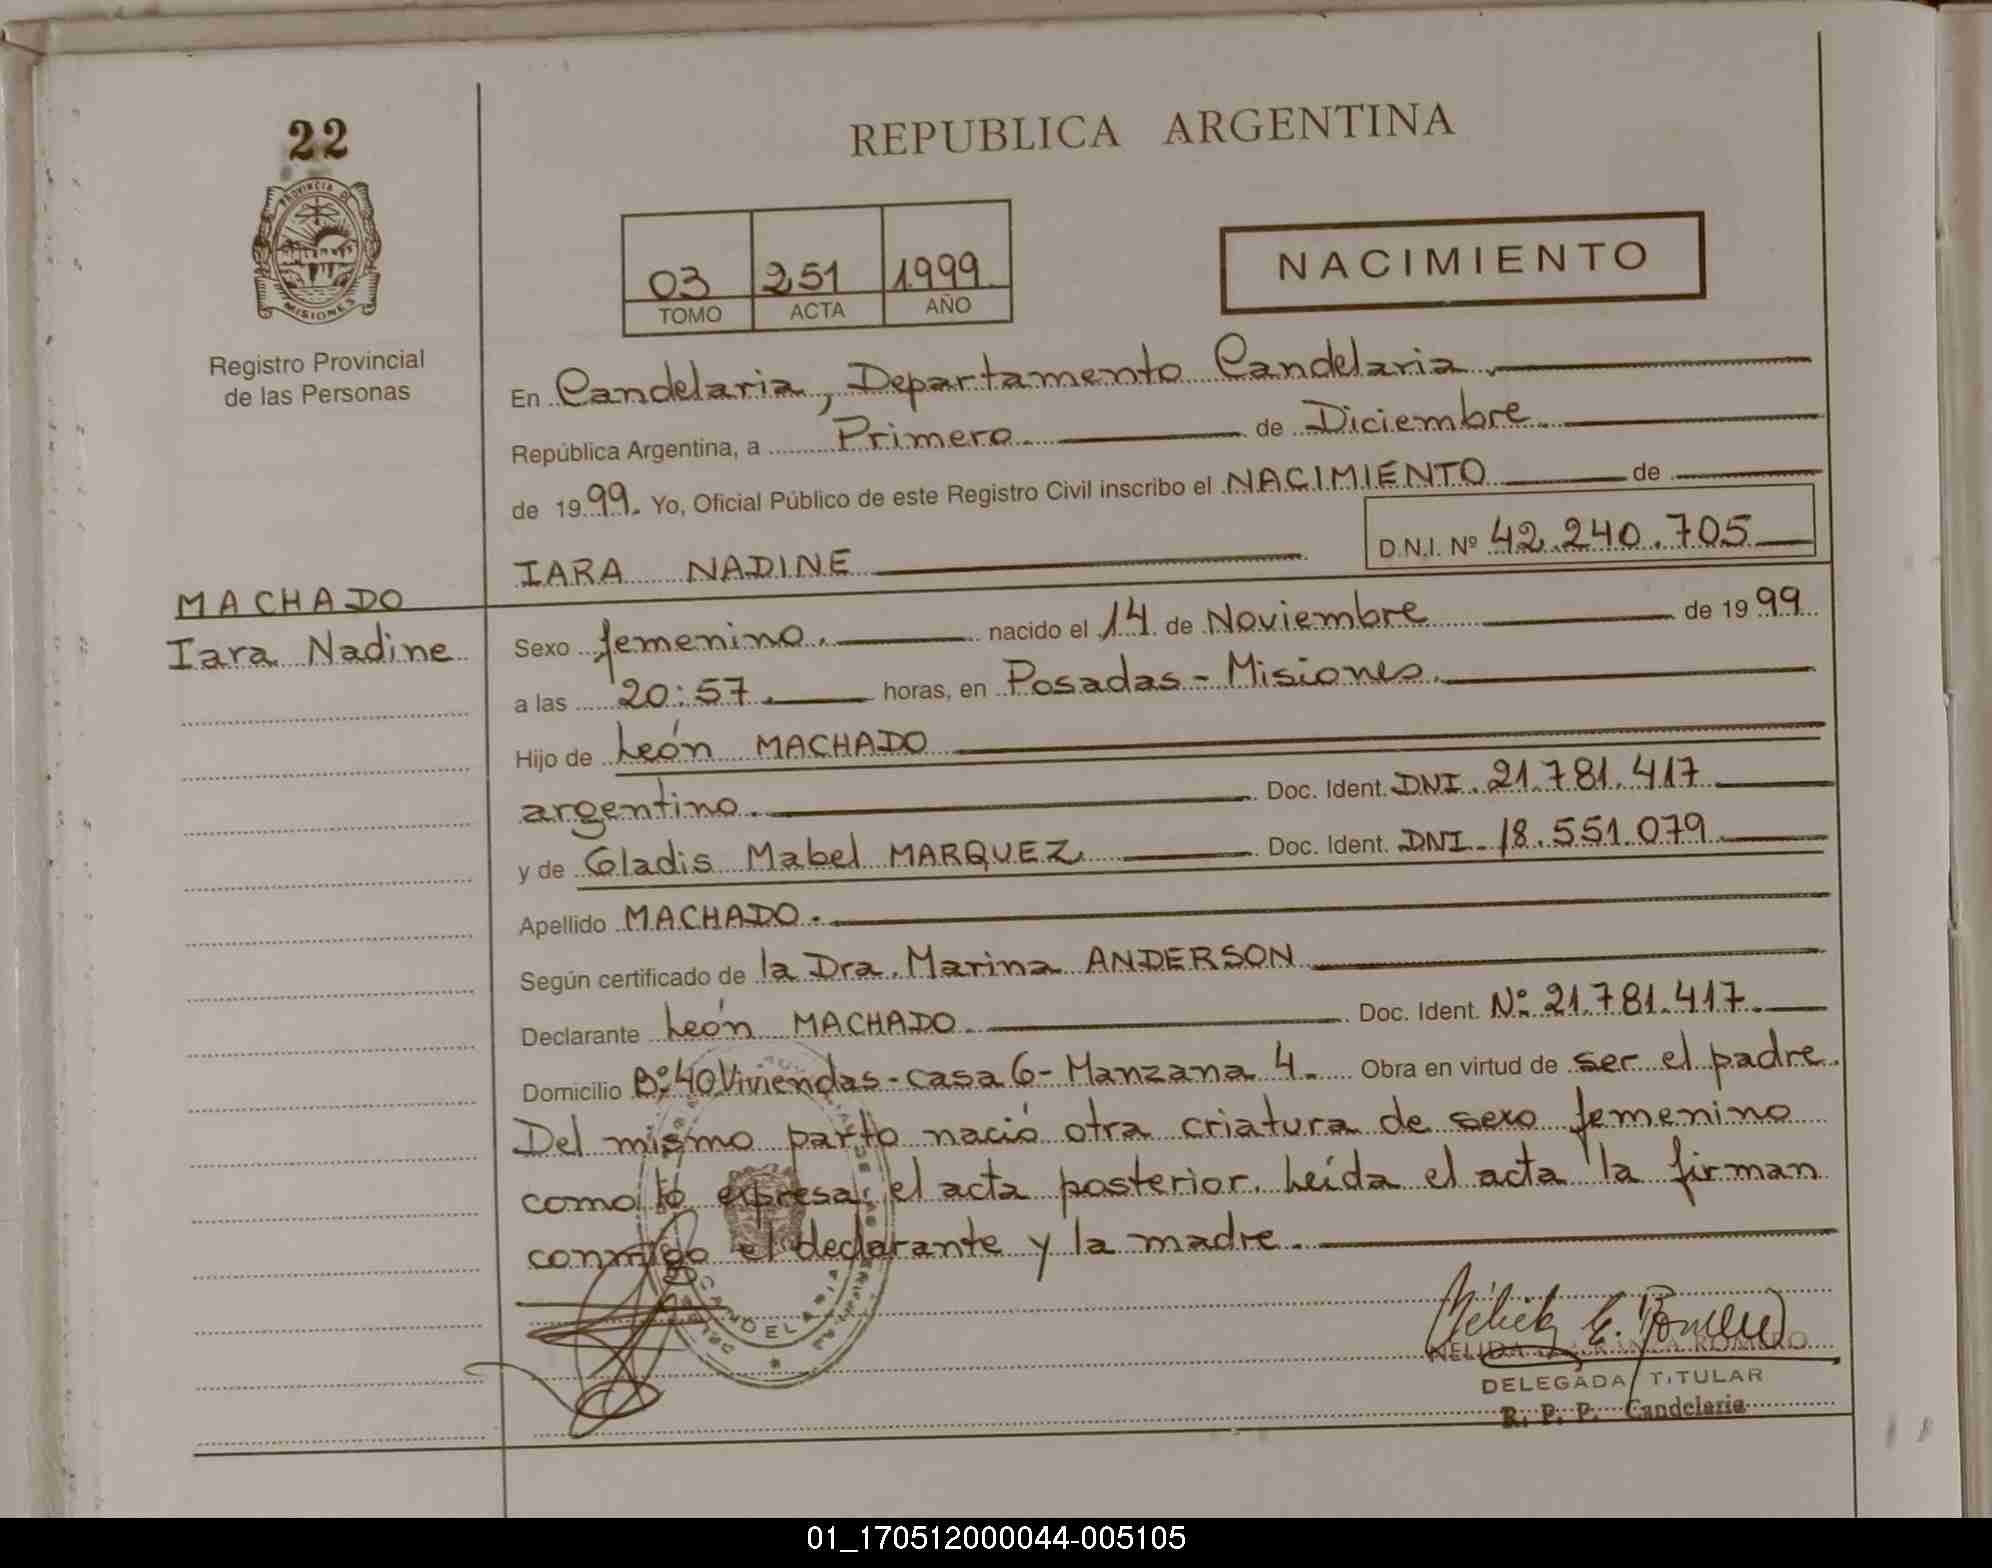 22
PROVINCIA DE
MISIONES
Registro Provincial
de las Personas
REPUBLICA ARGENTINA
03 251 1999
TOMO ACTA AÑO
NACIMIENTO
En Candelaria, Departamento Candelaria.
República Argentina, a Primero de Diciembre
de 1999. Yo, Oficial Público de este Registro Civil inscribo el NACIMIENTO de
IARA NADINE D.N.I. Nº 42.240.705
MACHADO
Iara Nadine
Sexo femenino. nacido el 14 de Noviembre de 1999
a las 20:57. horas, en Posadas - Misiones.
Hijo de León MACHADO
argentino. Doc. Ident. DNI. 21.781.417
y de Gladis Mabel MARQUEZ. Doc. Ident. DNI. 18.551.079
Apellido MACHADO.
Según certificado de la Dra. Marina ANDERSON
Declarante León MACHADO. Doc. Ident. Nº 21.781.417.
Domicilio Bº 40 Viviendas - casa 6 - Manzana 4. Obra en virtud de ser el padre.
Del mismo parto nació otra criatura de sexo femenino
como lo expresa el acta posterior. Leída el acta la firman
conmigo el declarante y la madre.
CANDELARIA
NELIDA ROMERO
DELEGADA TITULAR
R. P. P. Candelaria
01_170512000044-005105